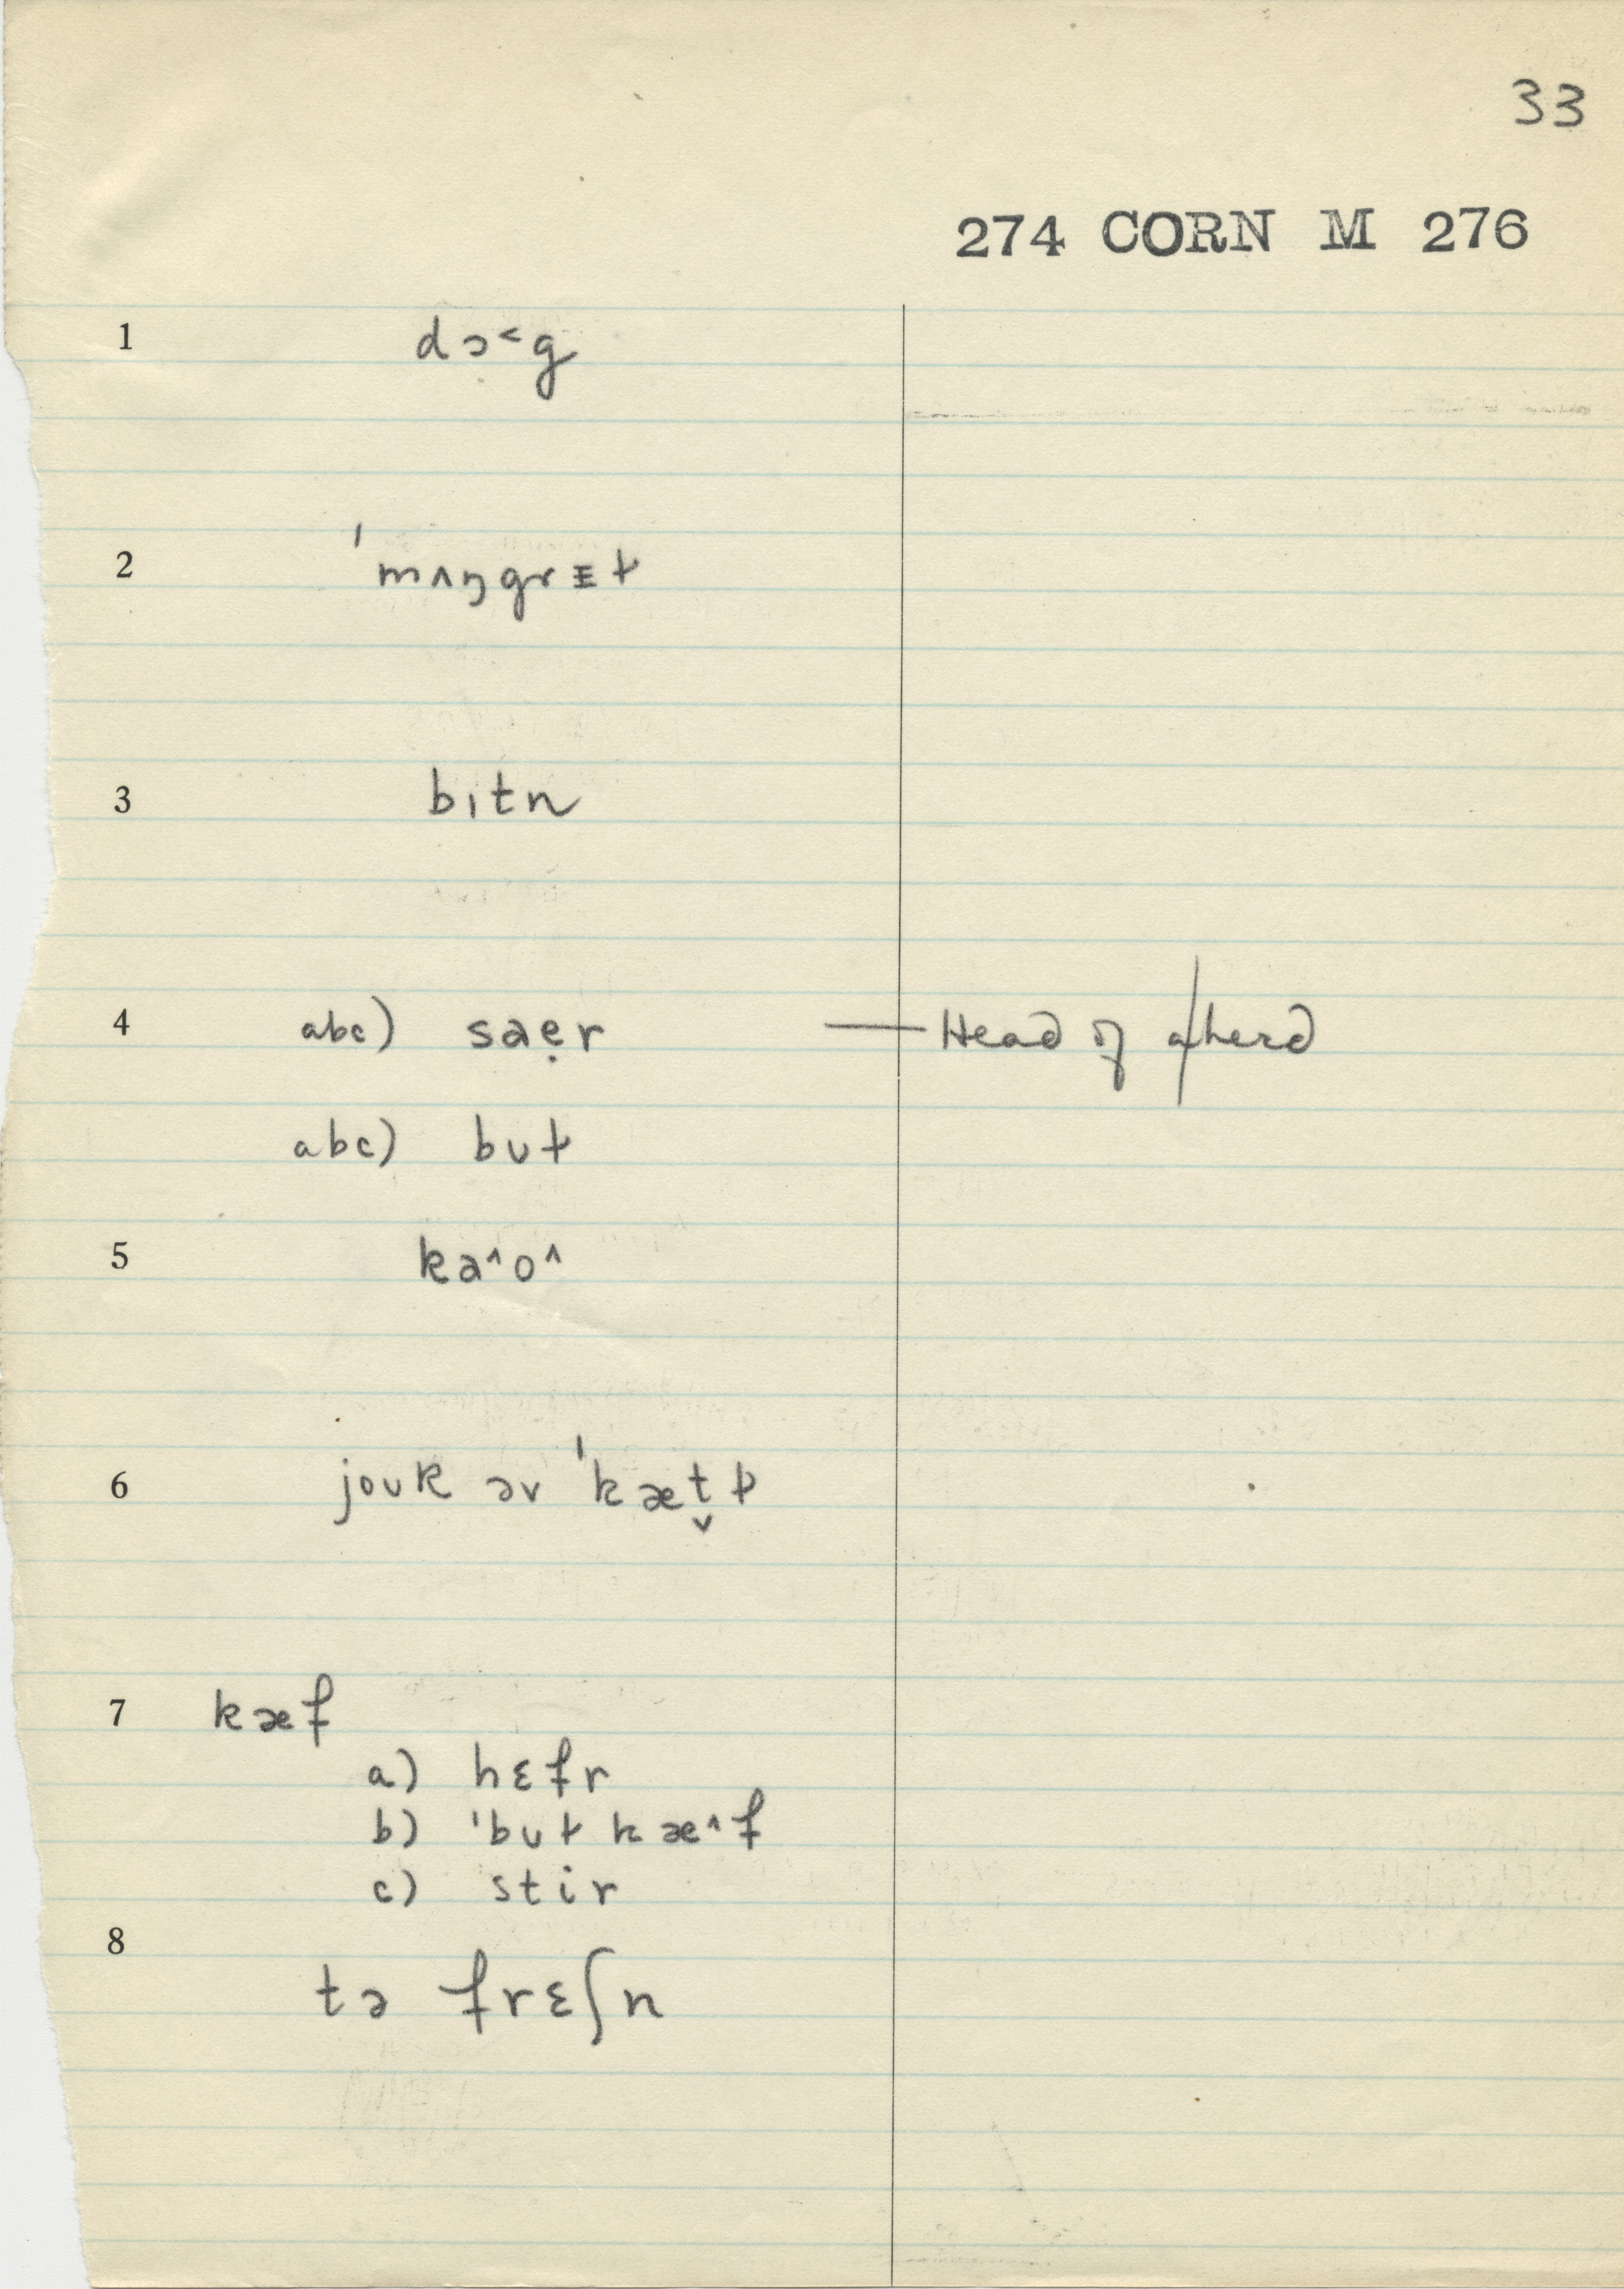 33
274 CORN M 276
1 dɔ˂g
2 ˈmʌŋgrɛɫ
3 bɪtn
4 abc) saẹr — Head of a herd
abc) bʊɫ
5 ka^o^
6 joʊk əv ˈkæt̬ɫ
7 kæf
a) hɛfr
b) ˈbʊɫ kæ^f
c) stir
8
tə frɛʃn